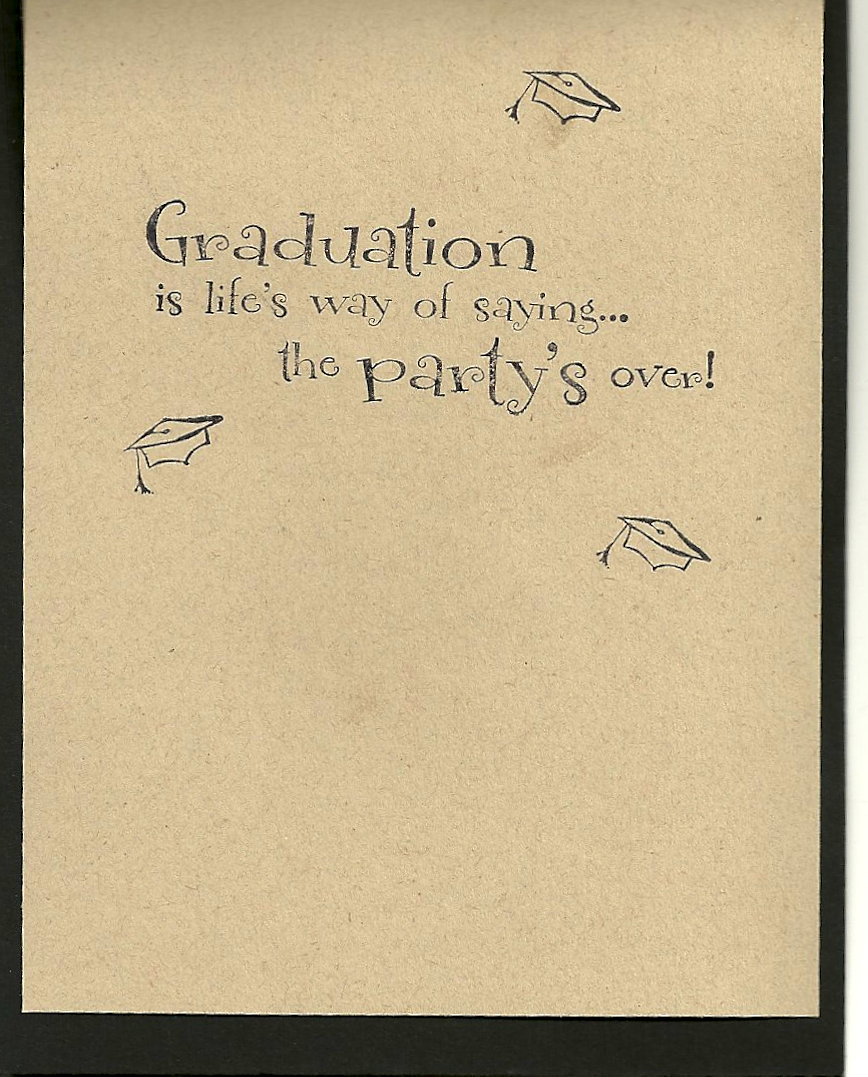 Graduation
is life's way of saying...
the party's over!